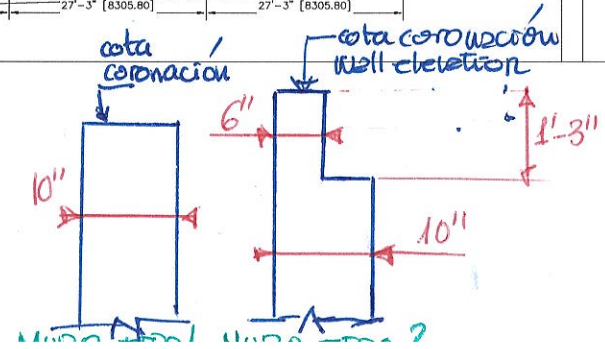 27'-3" [8305.80]
27'-3" [8305.80]
cota
coronación
cota coronación
wall elevation
6"
1'-3"
10"
10"
MURO TIPO 1
MURO TIPO 2